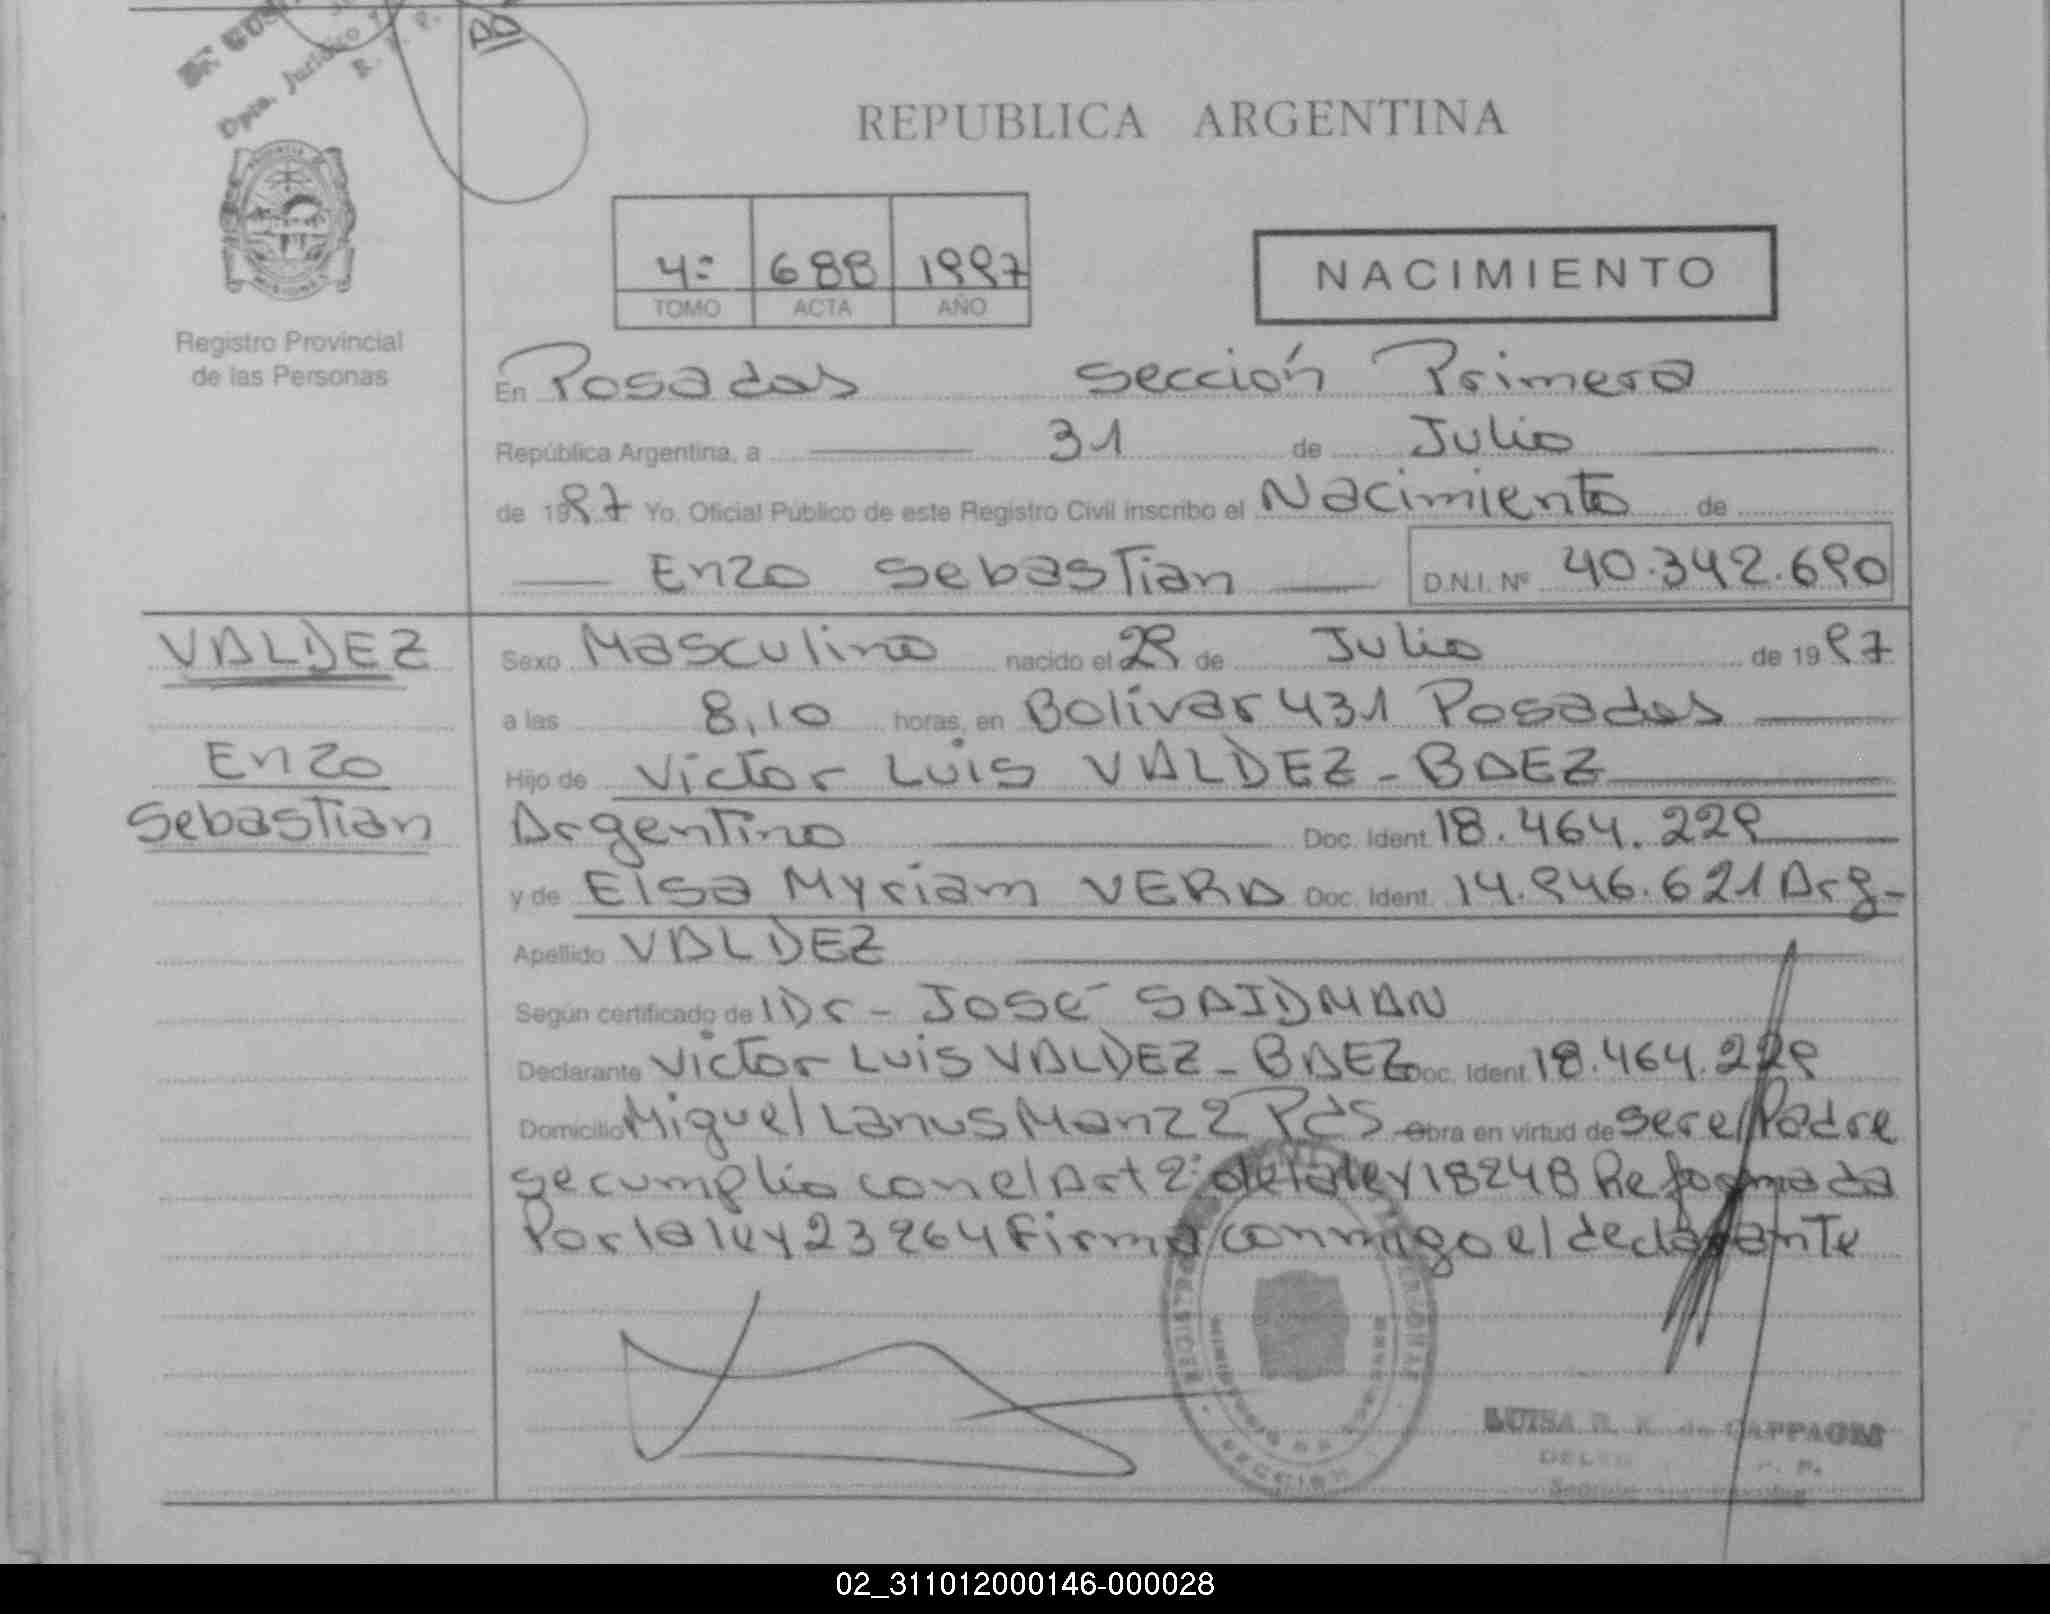 Dpto. Jurídico
REPUBLICA ARGENTINA
4º 688 1997
TOMO ACTA AÑO
NACIMIENTO
Registro Provincial
de las Personas
En Posadas sección Primera
República Argentina, a 31 de Julio
de 1997 Yo, Oficial Público de este Registro Civil inscribo el Nacimiento de
Enzo Sebastian D.N.I. Nº 40.342.690
VALDEZ
Enzo
Sebastian
Sexo Masculino nacido el 29 de Julio de 1997
a las 8,10 horas, en Bolívar 431 Posadas
Hijo de Victor Luis VALDEZ - BAEZ
Argentino Doc. Ident. 18.464.229
y de Elsa Myriam VERA Doc. Ident. 14.946.621 Arg-
Apellido VALDEZ
Según certificado de Dr - José SAIDMAN
Declarante Victor Luis VALDEZ - BAEZ Doc. Ident. 18.464.229
Domicilio Miguel Lanus Manz 2 Pds Obra en virtud de ser el Padre
se cumplio con el Art 2º de la ley 18248 Reformada
Por la ley 23264 Firma conmigo el declarante
LUISA R. K. de CAPPAGLI
02_311012000146-000028